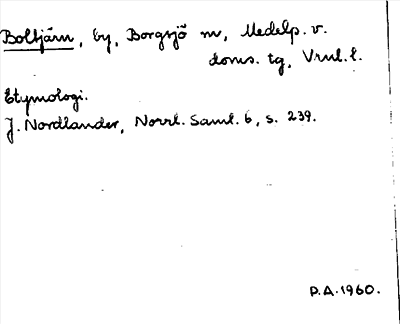 Boltjärn, by, Borgsjö sn, Medelp. v.
doms. tg, Vnl. l.
Etymologi.
J. Nordlander, Norrl. Saml. 6, s. 239.
P.A. 1960.